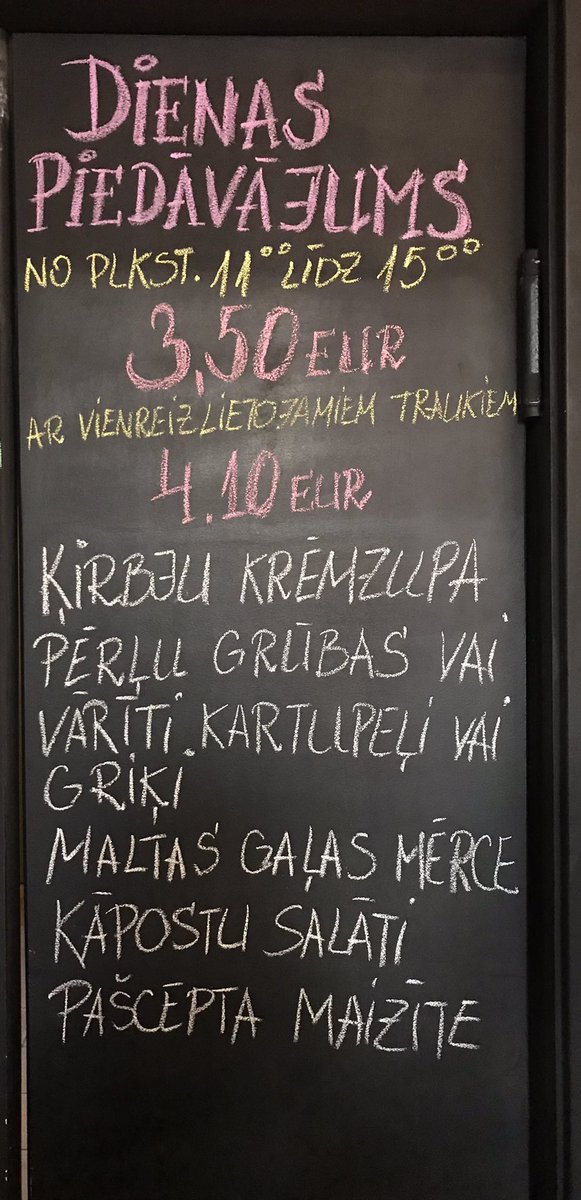 DIENAS
PIEDĀVĀJUMS
NO PLKST. 11°° LĪDZ 15°°
3,50 EUR
AR VIENREIZLIETOJAMIEM TRAUKIEM
4.10 EUR
ĶIRBJU KRĒMZUPA
PĒRĻU GRŪBAS VAI
VĀRĪTI KARTUPEĻI VAI
GRIĶI
MALTAS GAĻAS MĒRCE
KĀPOSTU SALĀTI
PAŠCEPTA MAIZĪTE